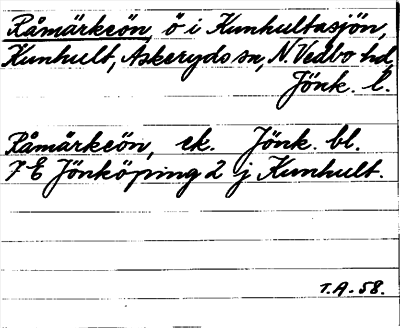 Råmärkeön, ö i Kunhultasjön,
Kunhult, Askeryds sn, N. Vedbo hd,
Jönk. l.
Råmärkeön, ek. Jönk. bl.
7 E Jönköping 2 j Kunhult.
T.A.-58.